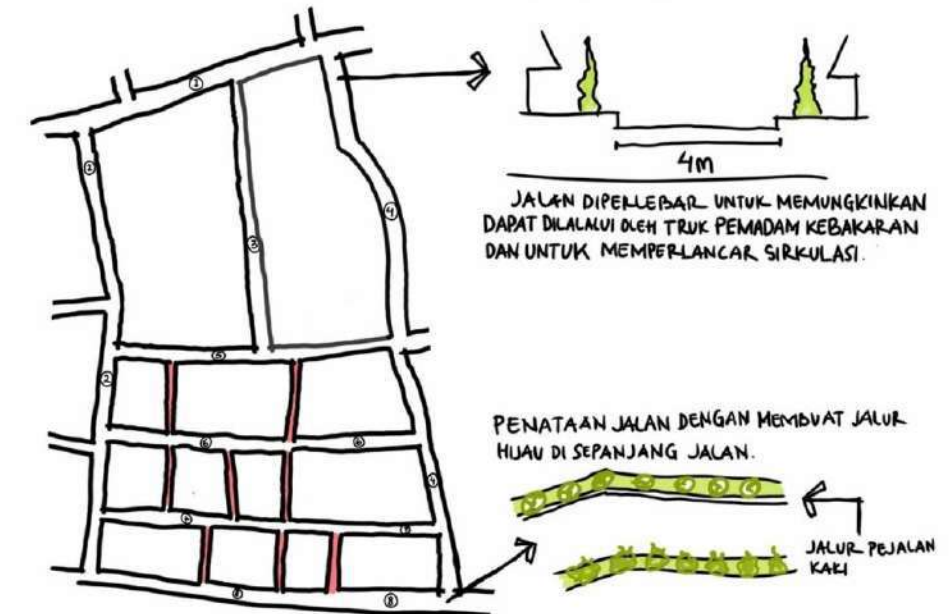 4M
JALAN DIPERLEBAR UNTUK MEMUNGKINKAN
DAPAT DILALALUI OLEH TRUK PEMADAM KEBAKARAN
DAN UNTUK MEMPERLANCAR SIRKULASI.
PENATAAN JALAN DENGAN MEMBUAT JALUR
HIJAU DI SEPANJANG JALAN.
JALUR PEJALAN
KAKI
1
2
3
4
5
2
6
6
4
8